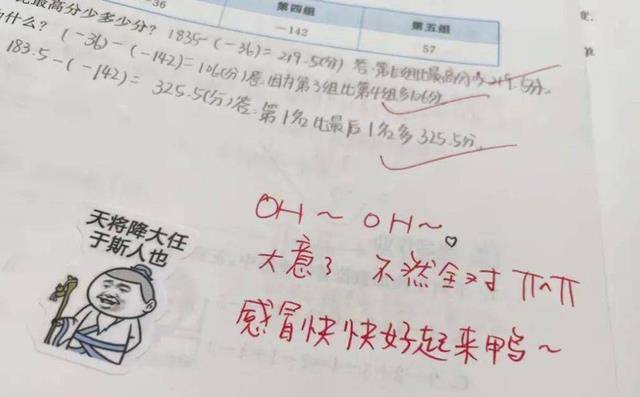 -36
第四组
第五组
-142
57
最高分少多少分? 183.5-(-36)=219.5(分)
什么? (-36)-(-142)=106(分)答:因为第3组比第4组多106分
183.5-(-142)=325.5(分)答:第1名比最后1名多325.5分
OH~OH~
大意了 不然全对 π^π
感冒快快好起来鸭~
天将降大任
于斯人也